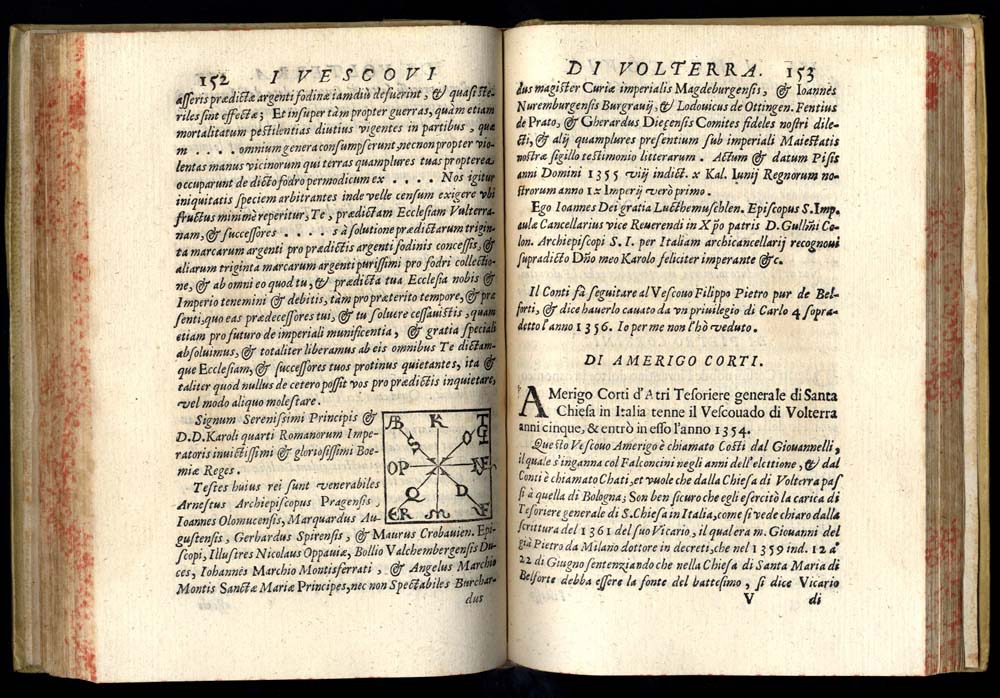 152 I VESCOVI
asseris prædictæ argenti fodinæ iamdiù defuerint, & quasi ste-
riles sint effectæ; Et insuper tàm propter guerras, quàm etiam
mortalitatum pestilentias diutius vigentes in partibus, quæ
m . . . . . omnium genera consumpserunt, necnon propter vio-
lentas manus vicinorum qui terras quamplures tuas propterea
occuparunt de dicto fodro permodicum ex . . . . Nos igitur
iniquitatis speciem arbitrantes inde velle censum exigere vbi
fructus minimè reperitur, Te, prædictam Ecclesiam Vulterra-
nam, & successores . . . . s à solutione prædictarum trigin-
ta marcarum argenti pro prædictis argenti fodinis concessis, &
aliarum triginta marcarum argenti purissimi pro fodri collectio-
ne, & ab omni eo quod tu, & prædicta tua Ecclesia nobis &
Imperio tenemini & debitis, tàm pro præterito tempore, & præ
senti, quo eas prædecessores tui, & tu soluere cessauistis, quam
etiam pro futuro de imperiali munificentia, & gratia speciali
absoluimus, & totaliter liberamus ab eis omnibus Te dictam-
que Ecclesiam, & successores tuos protinus quietantes, ita &
taliter quòd nullus de cetero possit vos pro prædictis inquietare,
vel modo aliquo molestare.
Signum Serenissimi Principis &
D.D. Karoli quarti Romanorum Impe-
ratoris inuictissimi & gloriosissimi Boe-
miæ Reges.
Testes huius rei sunt venerabiles
Arnestus Archiepiscopus Pragensis,
Ioannes Olomucensis, Marquardus Au-
gustensis, Gerhardus Spirensis, & Maurus Crobauien. Epi-
scopi, Illustres Nicolaus Oppauiæ, Bollio Valchembergensis Du-
ces, Iohannes Marchio Montisferrati, & Angelus Marchio
Montis Sanctæ Mariæ Principes, nec non Spectabiles Burchar-
dus
DI VOLTERRA. 153
dus magister Curiæ imperialis Magdeburgensis, & Ioannes
Nuremburgensis Burgrauij, & Lodouicus de Ottingen. Fentius
de Prato, & Gherardus Dieçensis Comites fideles nostri dile-
cti, & alij quamplures presentium sub imperiali Maiestatis
nostræ sigillo testimonio litterarum. Actum & datum Pisis
anni Domini 1355 viij indict. x Kal. Iunij Regnorum no-
strorum anno ix Imperij verò primo.
Ego Ioannes Dei gratia Lucthemuschlen. Episcopus S. Imp.
aulæ Cancellarius vice Reuerendi in Xp̃o patris D. Gullm̃i Co-
lon. Archiepiscopi S. I. per Italiam archicancellarij recognoui
supradicto Dño meo Karolo feliciter imperante &c.
Il Conti fà seguitare al Vescouo Filippo Pietro pur de Bel-
forti, & dice hauerlo cauato da vn priuilegio di Carlo 4 sopra-
detto l'anno 1356. Io per me non l'hò veduto.
DI AMERIGO CORTI.
AMerigo Corti d'Atri Tesoriere generale di Santa
Chiesa in Italia tenne il Vescouado di Volterra
anni cinque, & entrò in esso l'anno 1354.
Questo Vescouo Amerigo è chiamato Costi dal Giouannelli,
il quale s'inganna col Falconcini negli anni dell'elettione, & dal
Conti è chiamato Chati, et vuole che dalla Chiesa di Volterra pas
si à quella di Bologna; Son ben sicuro che egli esercitò la carica di
Tesoriere generale di S. Chiesa in Italia, come si vede chiaro dalla
scrittura del 1361 del suo Vicario, il qual era m. Giouanni del
già Pietro da Milano dottore in decreti, che nel 1359 ind. 12 a'
22 di Giugno sentenziando che nella Chiesa di Santa Maria di
Belforte debba essere la fonte del battesimo, si dice Vicario
V di